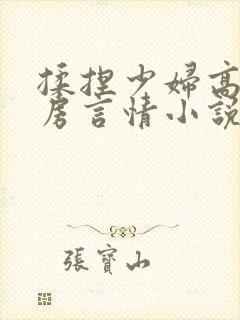 揉捏少婦高
房言情小說
張寶山